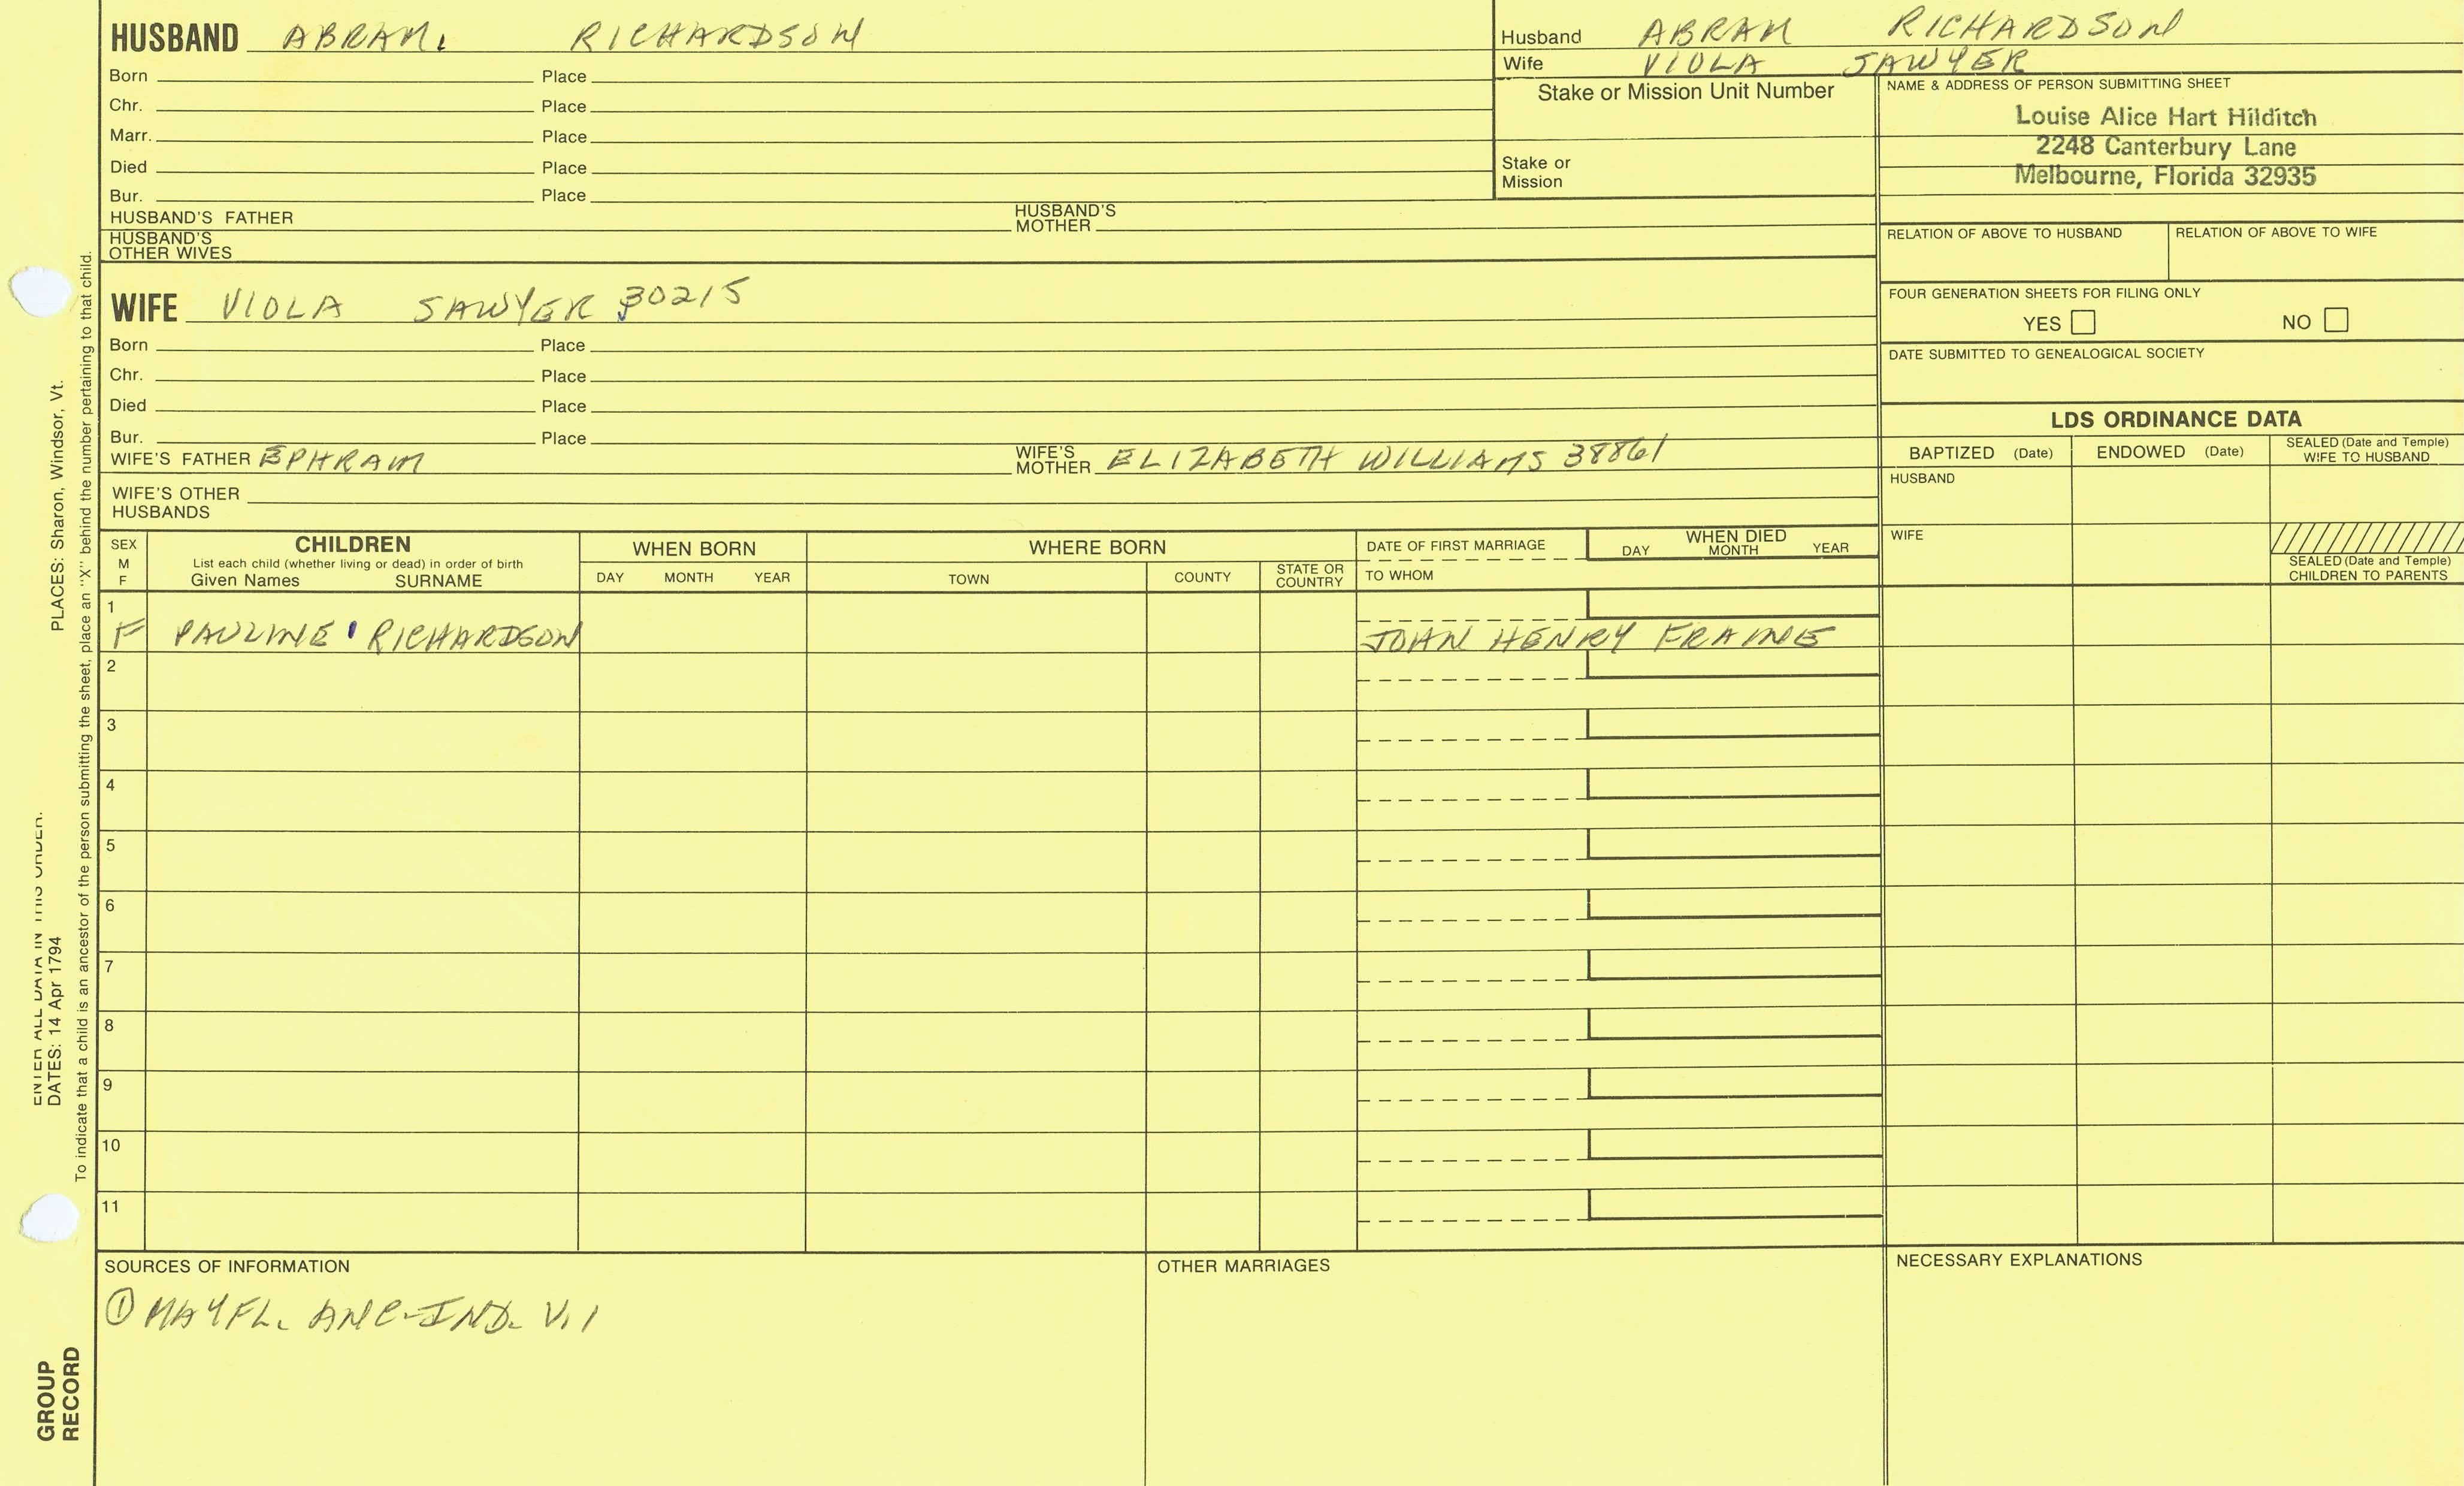 HUSBAND ABRAM. RICHARDSON
Born Place
Chr. Place
Marr. Place
Died Place
Bur. Place
HUSBAND'S FATHER HUSBAND'S MOTHER
HUSBAND'S OTHER WIVES
Husband ABRAM RICHARDSON
Wife VIOLA SAWYER
Stake or Mission Unit Number
Stake or Mission
NAME & ADDRESS OF PERSON SUBMITTING SHEET
Louise Alice Hart Hilditch
2248 Canterbury Lane
Melbourne, Florida 32935
RELATION OF ABOVE TO HUSBAND RELATION OF ABOVE TO WIFE
FOUR GENERATION SHEETS FOR FILING ONLY
YES NO
DATE SUBMITTED TO GENEALOGICAL SOCIETY
WIFE VIOLA SAWYER 30215
Born Place
Chr. Place
Died Place
Bur. Place
WIFE'S FATHER EPHRAIM WIFE'S MOTHER ELIZABETH WILLIAMS 38861
WIFE'S OTHER HUSBANDS
LDS ORDINANCE DATA
BAPTIZED (Date) ENDOWED (Date) SEALED (Date and Temple) WIFE TO HUSBAND
HUSBAND
WIFE
SEALED (Date and Temple) CHILDREN TO PARENTS
SEX M F
CHILDREN
List each child (whether living or dead) in order of birth
Given Names SURNAME
WHEN BORN
DAY MONTH YEAR
WHERE BORN
TOWN COUNTY STATE OR COUNTRY
DATE OF FIRST MARRIAGE
TO WHOM
WHEN DIED
DAY MONTH YEAR
1
F PAULINE RICHARDSON JOHN HENRY FRAINE
2
3
4
5
6
7
8
9
10
11
SOURCES OF INFORMATION
① MAYFL. ANC-IND. V.1
OTHER MARRIAGES
NECESSARY EXPLANATIONS
ENTER ALL DATA IN THIS ORDER.
DATES: 14 Apr 1794 PLACES: Sharon, Windsor, Vt.
To indicate that a child is an ancestor of the person submitting the sheet, place an "X" behind the number pertaining to that child.
GROUP
RECORD